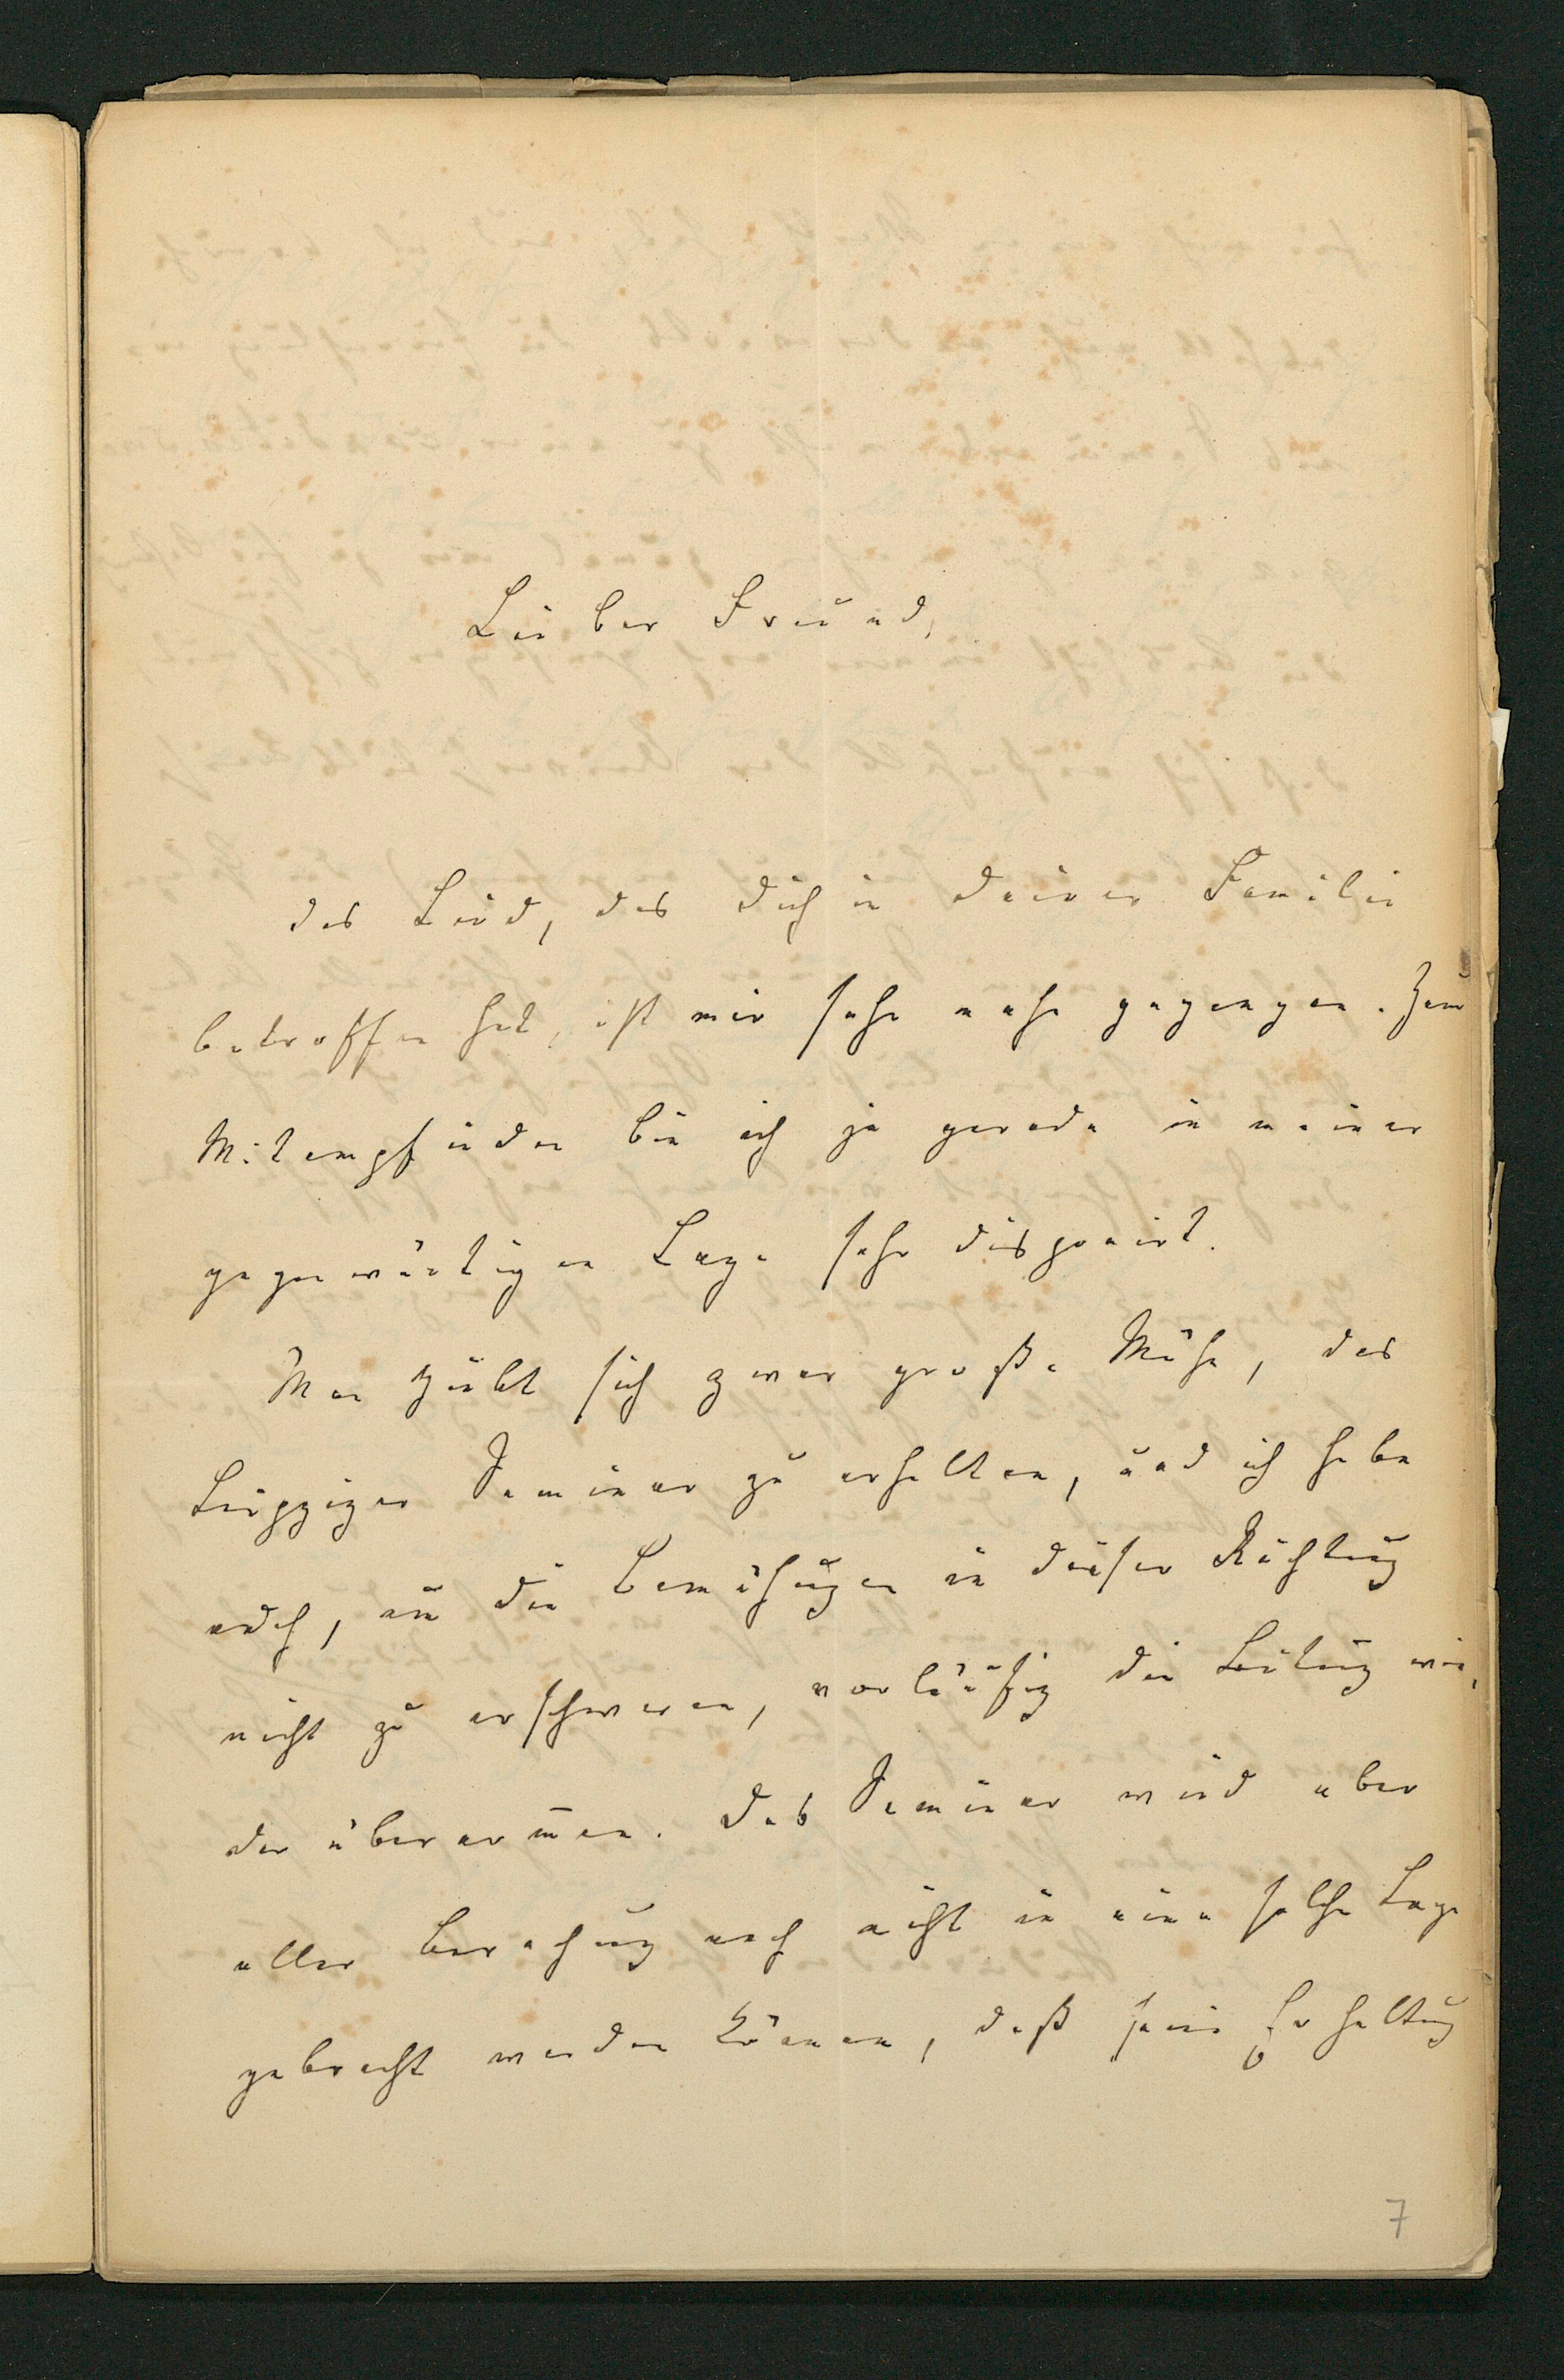 Lieber Freund,
das Leid, das dich in deiner Familie
betroffen hat, ist mir sehr nahe gegangen. Zum
Mitempfinden bin ich ja gerade in meiner
gegenwärtigen Lage sehr disponirt.
Man giebt sich zwar große Mühe, das
Leipziger Seminar zu erhalten, und ich habe
auch, um die Bemühungen in dieser Richtung
nicht zu erschweren, vorläufig die Leitung wie,
der übernom̅en. Das Seminar wird aber
aller Berechnung nach nicht in eine solche Lage
gebracht werden können, daß seine Erhaltung
7